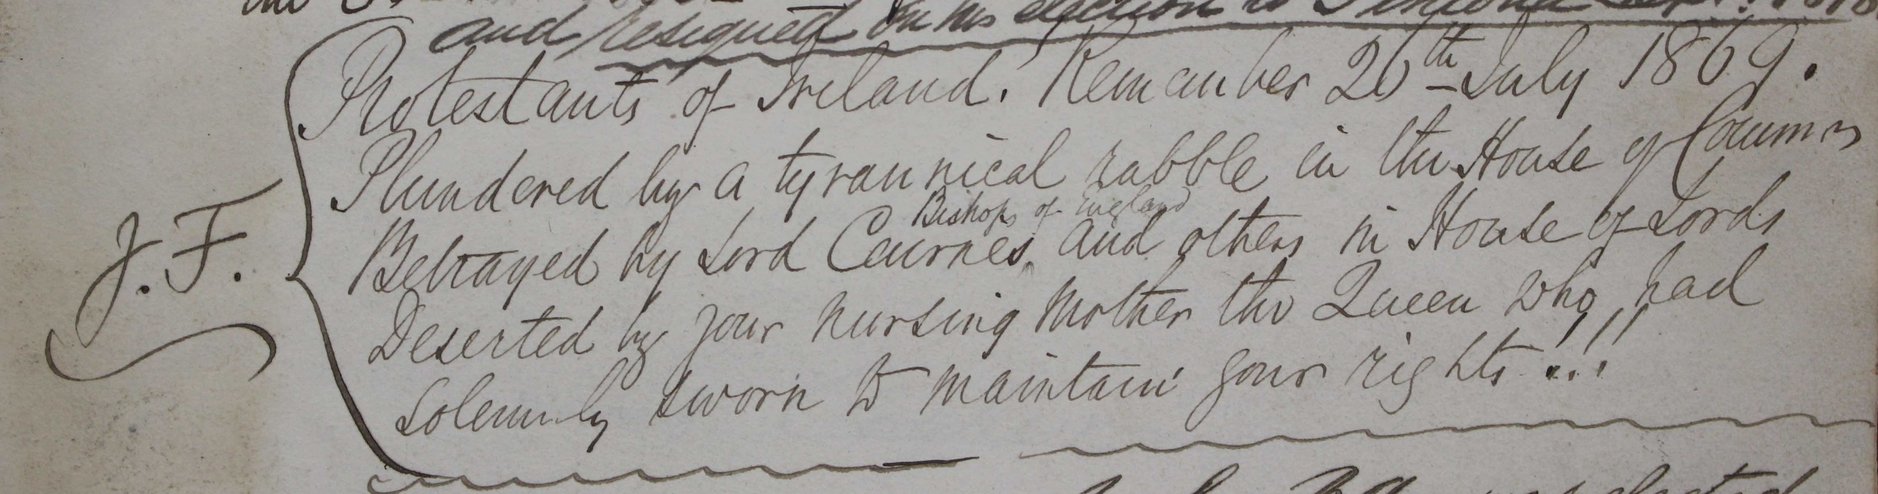 and resigned on his election to
Protestants of Ireland. Remember 26th July 1869.
Plundered by a tyrannical rabble in the House of Commns
Bishops of England
Betrayed by Lord Cairnes, and others in House of Lords
Deserted by your nursing Mother the Queen who had
J.F.
solemnly sworn to maintain your rights!!!
elected